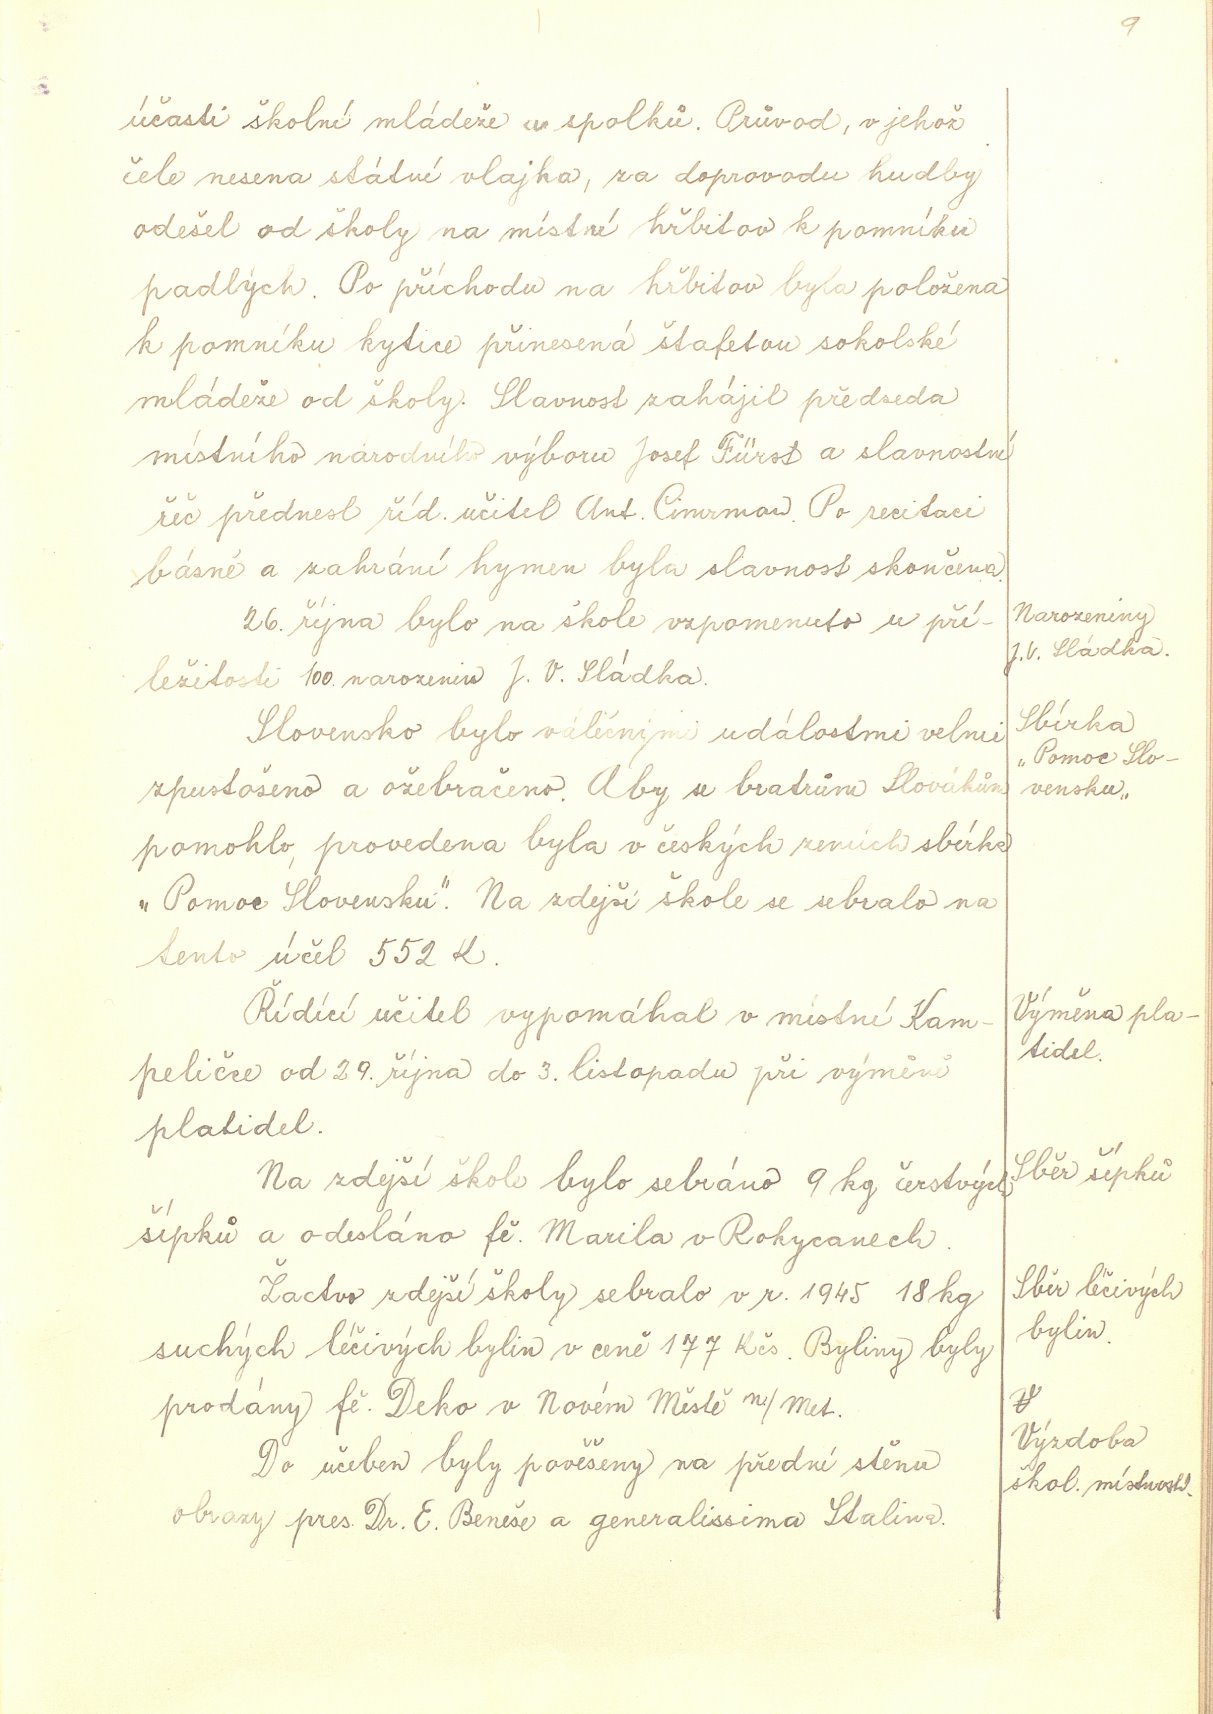 9
účasti školní mládeže a spolků. Průvod, v jehož
čele nesena státní vlajka, za doprovodu hudby
odešel od školy na místní hřbitov k pomníku
padlých. Po příchodu na hřbitov byla položena
k pomníku kytice přinesená štafetou sokolské
mládeže od školy. Slavnost zahájil předseda
místního národního výboru Josef Fürst a slavnostní
řeč přednesl říd. učitel Ant. Cimrman. Po recitaci
básně a zahrání hymen byla slavnost skončena.
26. října bylo na škole vzpomenuto u pří-
ležitosti 100. narozenin J. V. Sládka.
Narozeniny
J. V. Sládka.
Slovensko bylo válečnými událostmi velmi
zpustošeno a ožebračeno. Aby se bratrům Slovákům
pomohlo, provedena byla v českých zemích sbírka
„Pomoc Slovensku". Na zdejší škole se sebralo na
tento účel 552 K.
Sbírka
„Pomoc Slo-
vensku„
Řídící učitel vypomáhal v místní Kam-
peličce od 29. října do 3. listopadu při výměně
platidel.
Výměna pla-
tidel.
Na zdejší škole bylo sebráno 9 kg čerstvých
šípků a odesláno fě. Marila v Rokycanech.
Sběr šípků
Žactvo zdejší školy sebralo v r. 1945 18 kg
suchých léčivých bylin v ceně 177 Kčs. Byliny byly
prodány fě. Deko v Novém Městě n/Met.
Sběr léčivých
bylin.
Do učeben byly pověšeny na přední stěnu
obrazy pres. Dr. E. Beneše a generalissima Stalina.
Výzdoba
škol. místností.